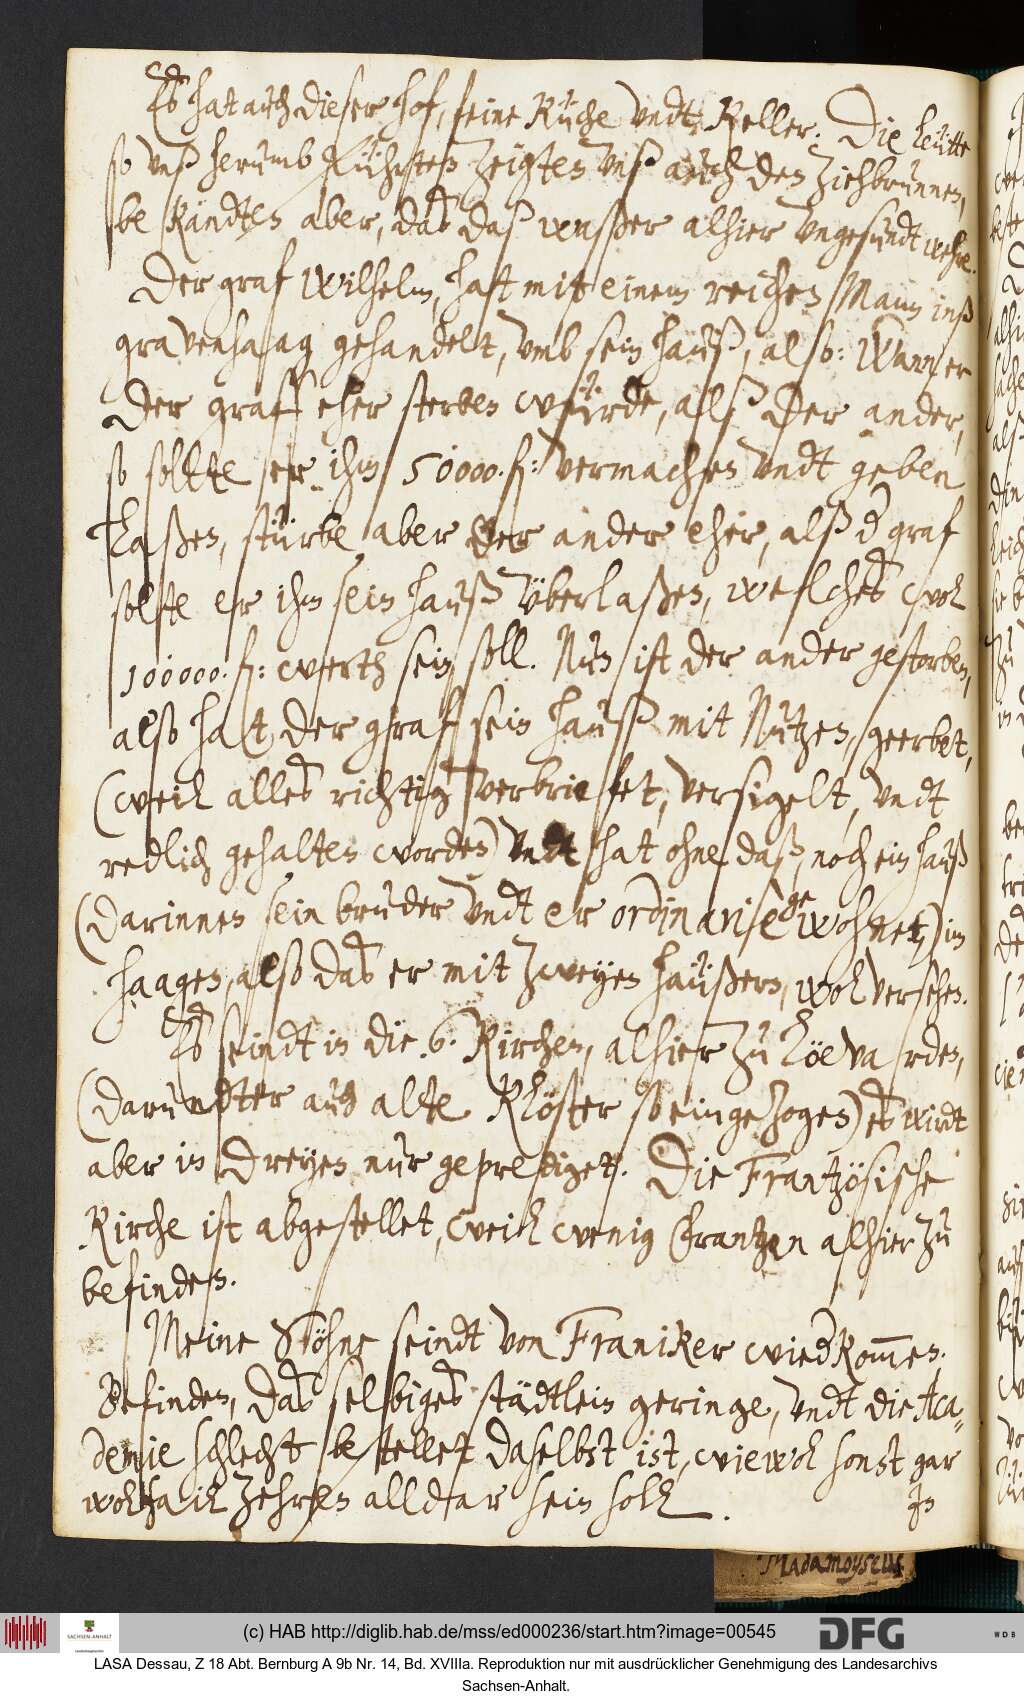 Es hat auch dieser hof, seine Küche vndt Keller. Die leütte
so vnß herumb führeten zeigten vnß auch den ziehbrunnen,
bekändten aber, das daß waßer alhier vngesundt wehre.
Der graf Wilhelm, hatt mit einem reichen Mann inß
gravenhaag gehandelt, vmb sein hauß, also: Wann er
Der graff eher sterben würde, alß Der ander,
so sollte er ihm 50000. fl: vermachen vndt geben
laßen, stürbe aber Der ander eher, alß d graf
sollte er ihm sein hauß vberlaßen, welches wol
100000. fl: werth sein soll. Nun ist der ander gestorben,
also hat der graf sein hauß mit Nutzen, geerbet,
(weil alles richtig verbriefet, versigelt, vndt
redlich gehalten worden) vndt hat ohne daß, noch ein hauß
(Darinnen sein bruder vndt er ordinarie gewohnet,) im
haagen, also das er mit zweyen haüßern, wol versehen.
Es seindt in die .6. Kirchen, alhier zu Löevarden,
(darundter auch alte Klöster so eingezogen) es wirdt
aber in Dreyen nur geprediget. Die Frantzösische
Kirche ist abgestellet, weil wenig Frantzen alhier zu
befinden.
Meine Söhne seindt von Franiker wiedkommen.
Befinden, das selbiges städtlein geringe, vndt die Aca-
demie schlecht bestellet daselbst ist, wiewol sonst gar
wolfail zehren alldar sein soll.
In
Madamoyselle
(c) HAB http://diglib.hab.de/mss/ed000236/start.htm?image=00545
SACHSEN-ANHALT
DFG
WDB
LASA Dessau, Z 18 Abt. Bernburg A 9b Nr. 14, Bd. XVIIIa. Reproduktion nur mit ausdrücklicher Genehmigung des Landesarchivs
Sachsen-Anhalt.